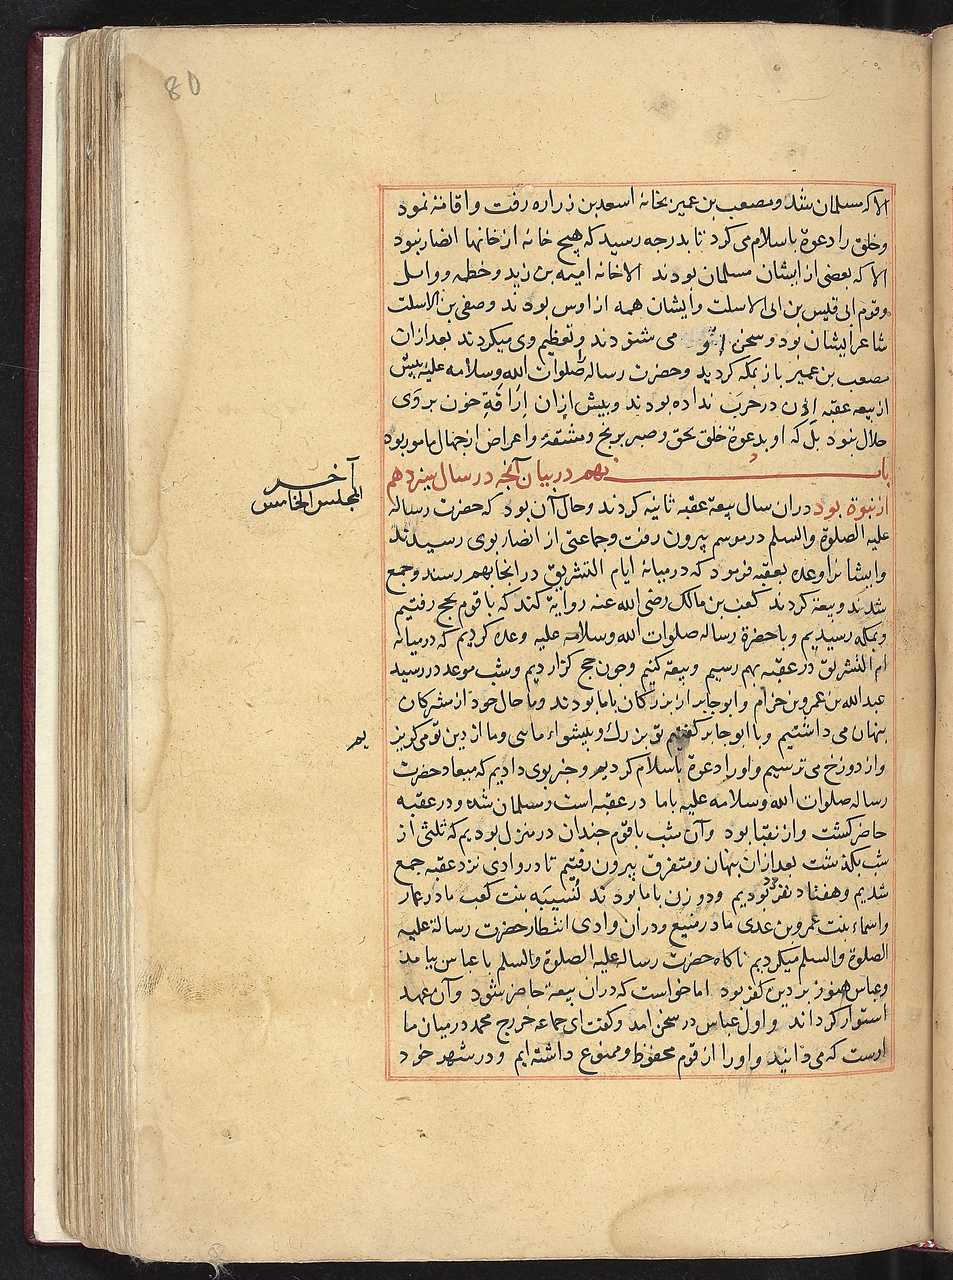 80
الا که مسلمان شد و مصعب بن عمیر بخانهٔ اسعد بن زراره رفت و اقامة نمود
و خلق را دعوة باسلام می کرد تا بدرجه رسید که هیچ خانه از خانها انصار نبود
الا که بعضی از ایشان مسلمان بودند الا خانه امیه بن زید و خطمه و وایل
وقوم ابی قیس بن ابی الاسلت و ایشان همه از اوس بودند وصفی بن الاسلت
شاعر ایشان بود و سخن او می شنودند و تعظیم وی میکردند بعد ازان
مصعب بن عمیر باز بمکه کردید و حضرت رسالة را صلوات الله وسلامه علیه پیش
از بیعة عقبه اذن در حرب نداده بودند و پیش ازان اراقة خون بر وی
حلال نبود بل که او بدعوة خلق بحق و صبر برنج و مشقة و اعراض از جهال مامور بود
باب نهم در بیان آنجه در سال سیزدهم
آخر
المجلس الخامس
از نبوة بود دران سال بیعة عقبه ثانیه کردند وحال آن بود که حضرت رسالة
علیه الصلوة والسلم در موسم بیرون رفت و جماعتی از انصار بوی رسیدند
و ایشانرا وعده بعقبه فرمود که در میانهٔ ایام التشریق در انجا بهم رسند وجمع
شدند و بیعة کردند کعب بن مالک رضی الله عنه روایة کند که با قوم بحج رفتیم
و بمکه رسیدیم و با حضرة رسالة صلوات الله وسلامه علیه وعده کردیم که در میانهٔ
ام التشریق در عقبه بهم رسیم و بیعة کنیم وچون حج کزاردیم و شب موعد در رسید
عبدالله بن عمرو بن حزام و ابو جابر از بزرکان باما بودند و ما حال خود از مشرکان
پنهان می داشتیم و با ابو جابر کفتیم تو بزرک و پیشواء مایی و ما از دین تو می کریز
یم
و از دوزخ می ترسیم و او را دعوة باسلام کردیم وخبر بوی دادیم که میعاد حضرت
رسالة صلوات الله وسلامه علیه باما در عقبه است مسلمان شد و در عقبه
حاضر کشت و از نقبا بود و آن شب با قوم چندان در منزل بودیم که ثلثی از
شب بکذشت بعد ازان پنهان و متفرق بیرون رفتیم تا در وادی نزد عقبه جمع
شدیم و هفتاد نفر بودیم و دو زن باما بودند نُسَیبَه بنت کعب مادر عمار
و اسماء بنت عمرو بن عدی مادر منیع و دران وادی انتظار حضرت رسالة علیه
الصلوة والسلم میکردیم ناکاه حضرت رسالة علیه الصلوة والسلم با عباس بیامد
وعباس هنوز بر دین کفر بود اما خواست که دران بیعة حاضر شود و آن عهد
استوار کرداند و اول عباس در سخن امد و کفت ای جماعة خزرج محمد در میان ما
اوست که می دانید و او را از قوم محفوظ و ممنوع داشته ایم و در شهر خود